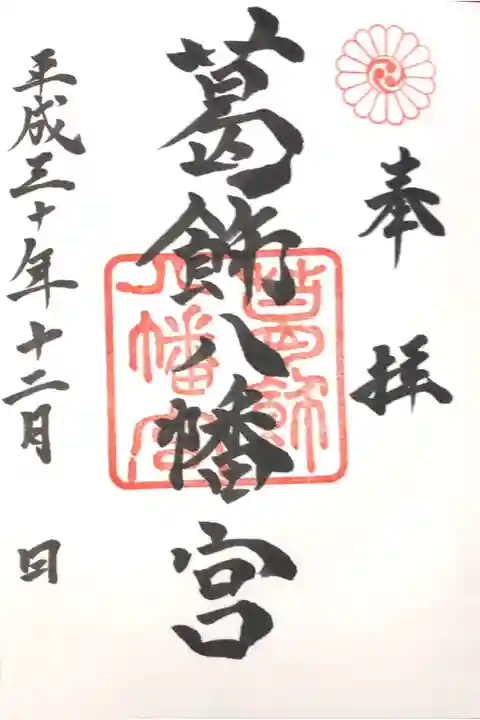 奉拝
葛飾八幡宮
平成三十年十二月 日
葛飾
八幡宮